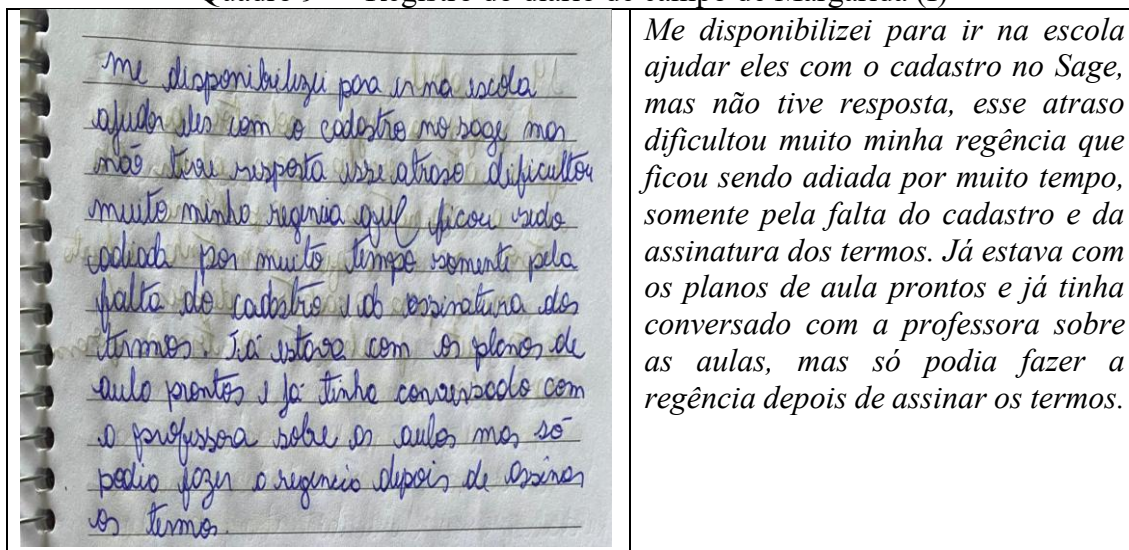 Me disponibilizei para ir na escola
ajudar eles com o cadastro no sage mas
não tive resposta esse atraso dificultou
muito minha regencia que ficou sedo
adiada por muito tempo somente pela
falta do cadastro e da assinatura dos
termos. Já estava com os planos de
aula prontos e já tinha conversado com
a professora sobre as aulas mas só
podia fazer a regencia depois de assinar
os termos.
Me disponibilizei para ir na escola
ajudar eles com o cadastro no Sage,
mas não tive resposta, esse atraso
dificultou muito minha regência que
ficou sendo adiada por muito tempo,
somente pela falta do cadastro e da
assinatura dos termos. Já estava com
os planos de aula prontos e já tinha
conversado com a professora sobre
as aulas, mas só podia fazer a
regência depois de assinar os termos.